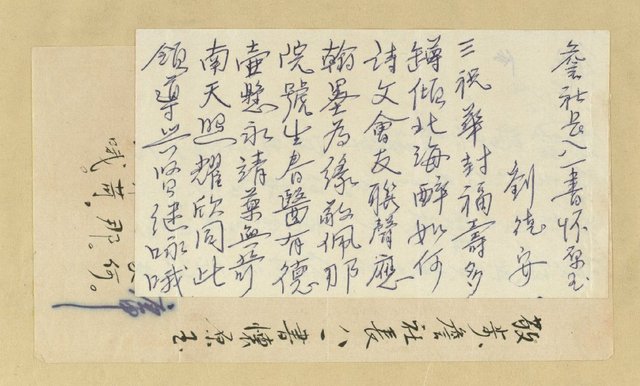 詹社長八一書怀原玉
劉德安
三祝華封福壽多
罇傾北海醉如何
詩文會友联聲應
翰墨為緣敢佩那
院號生春醫有德
壺懸永靖藥無苛
南天照耀欣同此
領導興賢建咏哦
敬步詹社長八一書懷原玉